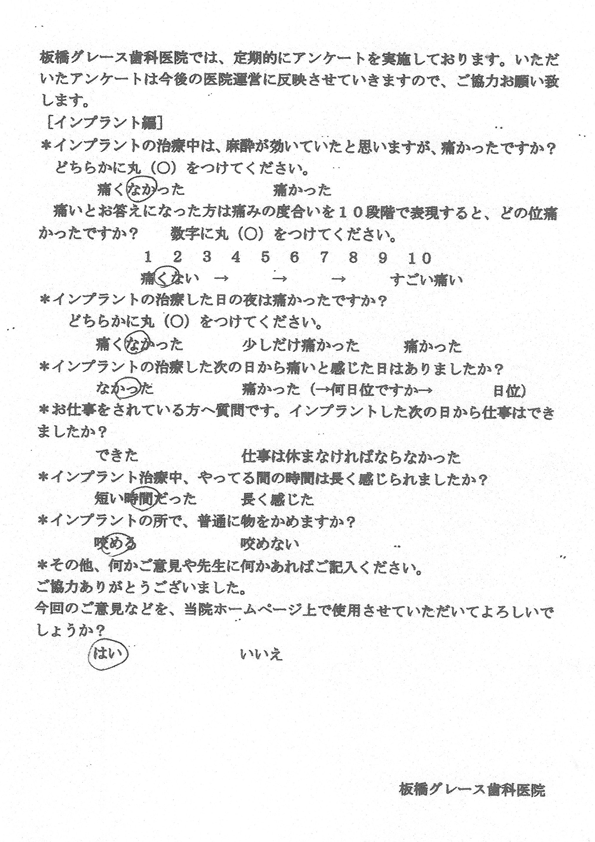 板橋グレース歯科医院では、定期的にアンケートを実施しております。いただ
いたアンケートは今後の医院運営に反映させていきますので、ご協力お願い致
します。
［インプラント編］
＊インプラントの治療中は、麻酔が効いていたと思いますが、痛かったですか？
どちらかに丸（〇）をつけてください。
痛くなかった　　　痛かった
痛いとお答えになった方は痛みの度合いを１０段階で表現すると、どの位痛
かったですか？　数字に丸（〇）をつけてください。
１　２　３　４　５　６　７　８　９　１０
痛くない　→　　→　　→　　すごい痛い
＊インプラントの治療した日の夜は痛かったですか？
どちらかに丸（〇）をつけてください。
痛くなかった　　　少しだけ痛かった　　　痛かった
＊インプラントの治療した次の日から痛いと感じた日はありましたか？
なかった　　　痛かった（→何日位ですか→　　　日位）
＊お仕事をされている方へ質問です。インプラントした次の日から仕事はでき
ましたか？
できた　　　仕事は休まなければならなかった
＊インプラント治療中、やってる間の時間は長く感じられましたか？
短い時間だった　　　長く感じた
＊インプラントの所で、普通に物をかめますか？
咬める　　　咬めない
＊その他、何かご意見や先生に何かあればご記入ください。
ご協力ありがとうございました。
今回のご意見などを、当院ホームページ上で使用させていただいてよろしいで
しょうか？
はい　　　いいえ
板橋グレース歯科医院